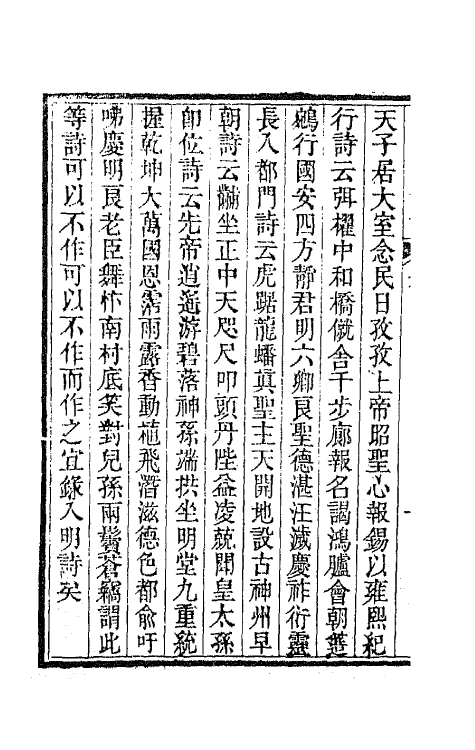 天子居大室念民日孜孜上帝昭聖心報錫以雍熙紀
行詩云弭櫂中和橋僦舍千步廊報名謁鴻臚會朝簉
鵷行國安四方靜君明六卿良聖德湛汪濊慶祚衍靈
長入都門詩云虎踞龍蟠眞聖主天開地設古神州早
朝詩云黼坐正中天咫尺叩頭丹陛益凌兢聞皇太孫
卽位詩云先帝逍遙游碧落神孫端拱坐明堂九重統
握乾坤大萬國恩霑雨露香動植飛潛滋德色都俞吁
咈慶明良老臣舞忭南村底笑對兒孫兩鬢蒼竊謂此
等詩可以不作可以不作而作之宜錄入明詩矣